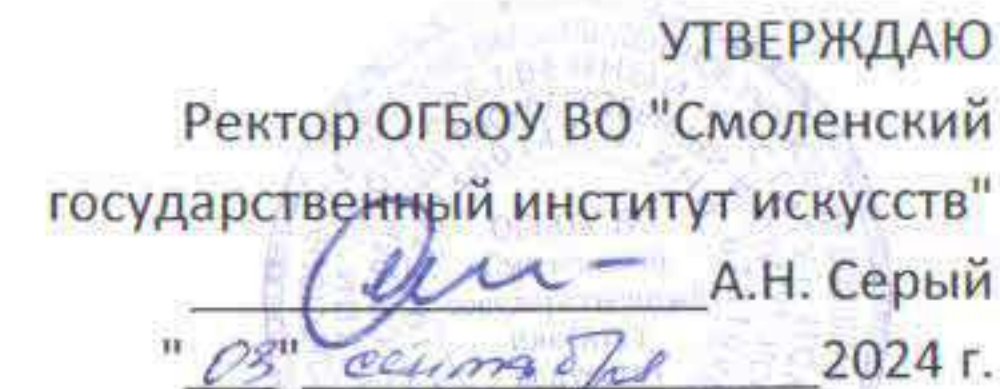 УТВЕРЖДАЮ
Ректор ОГБОУ ВО "Смоленский
государственный институт искусств"
А.Н. Серый
"03" сентября 2024 г.